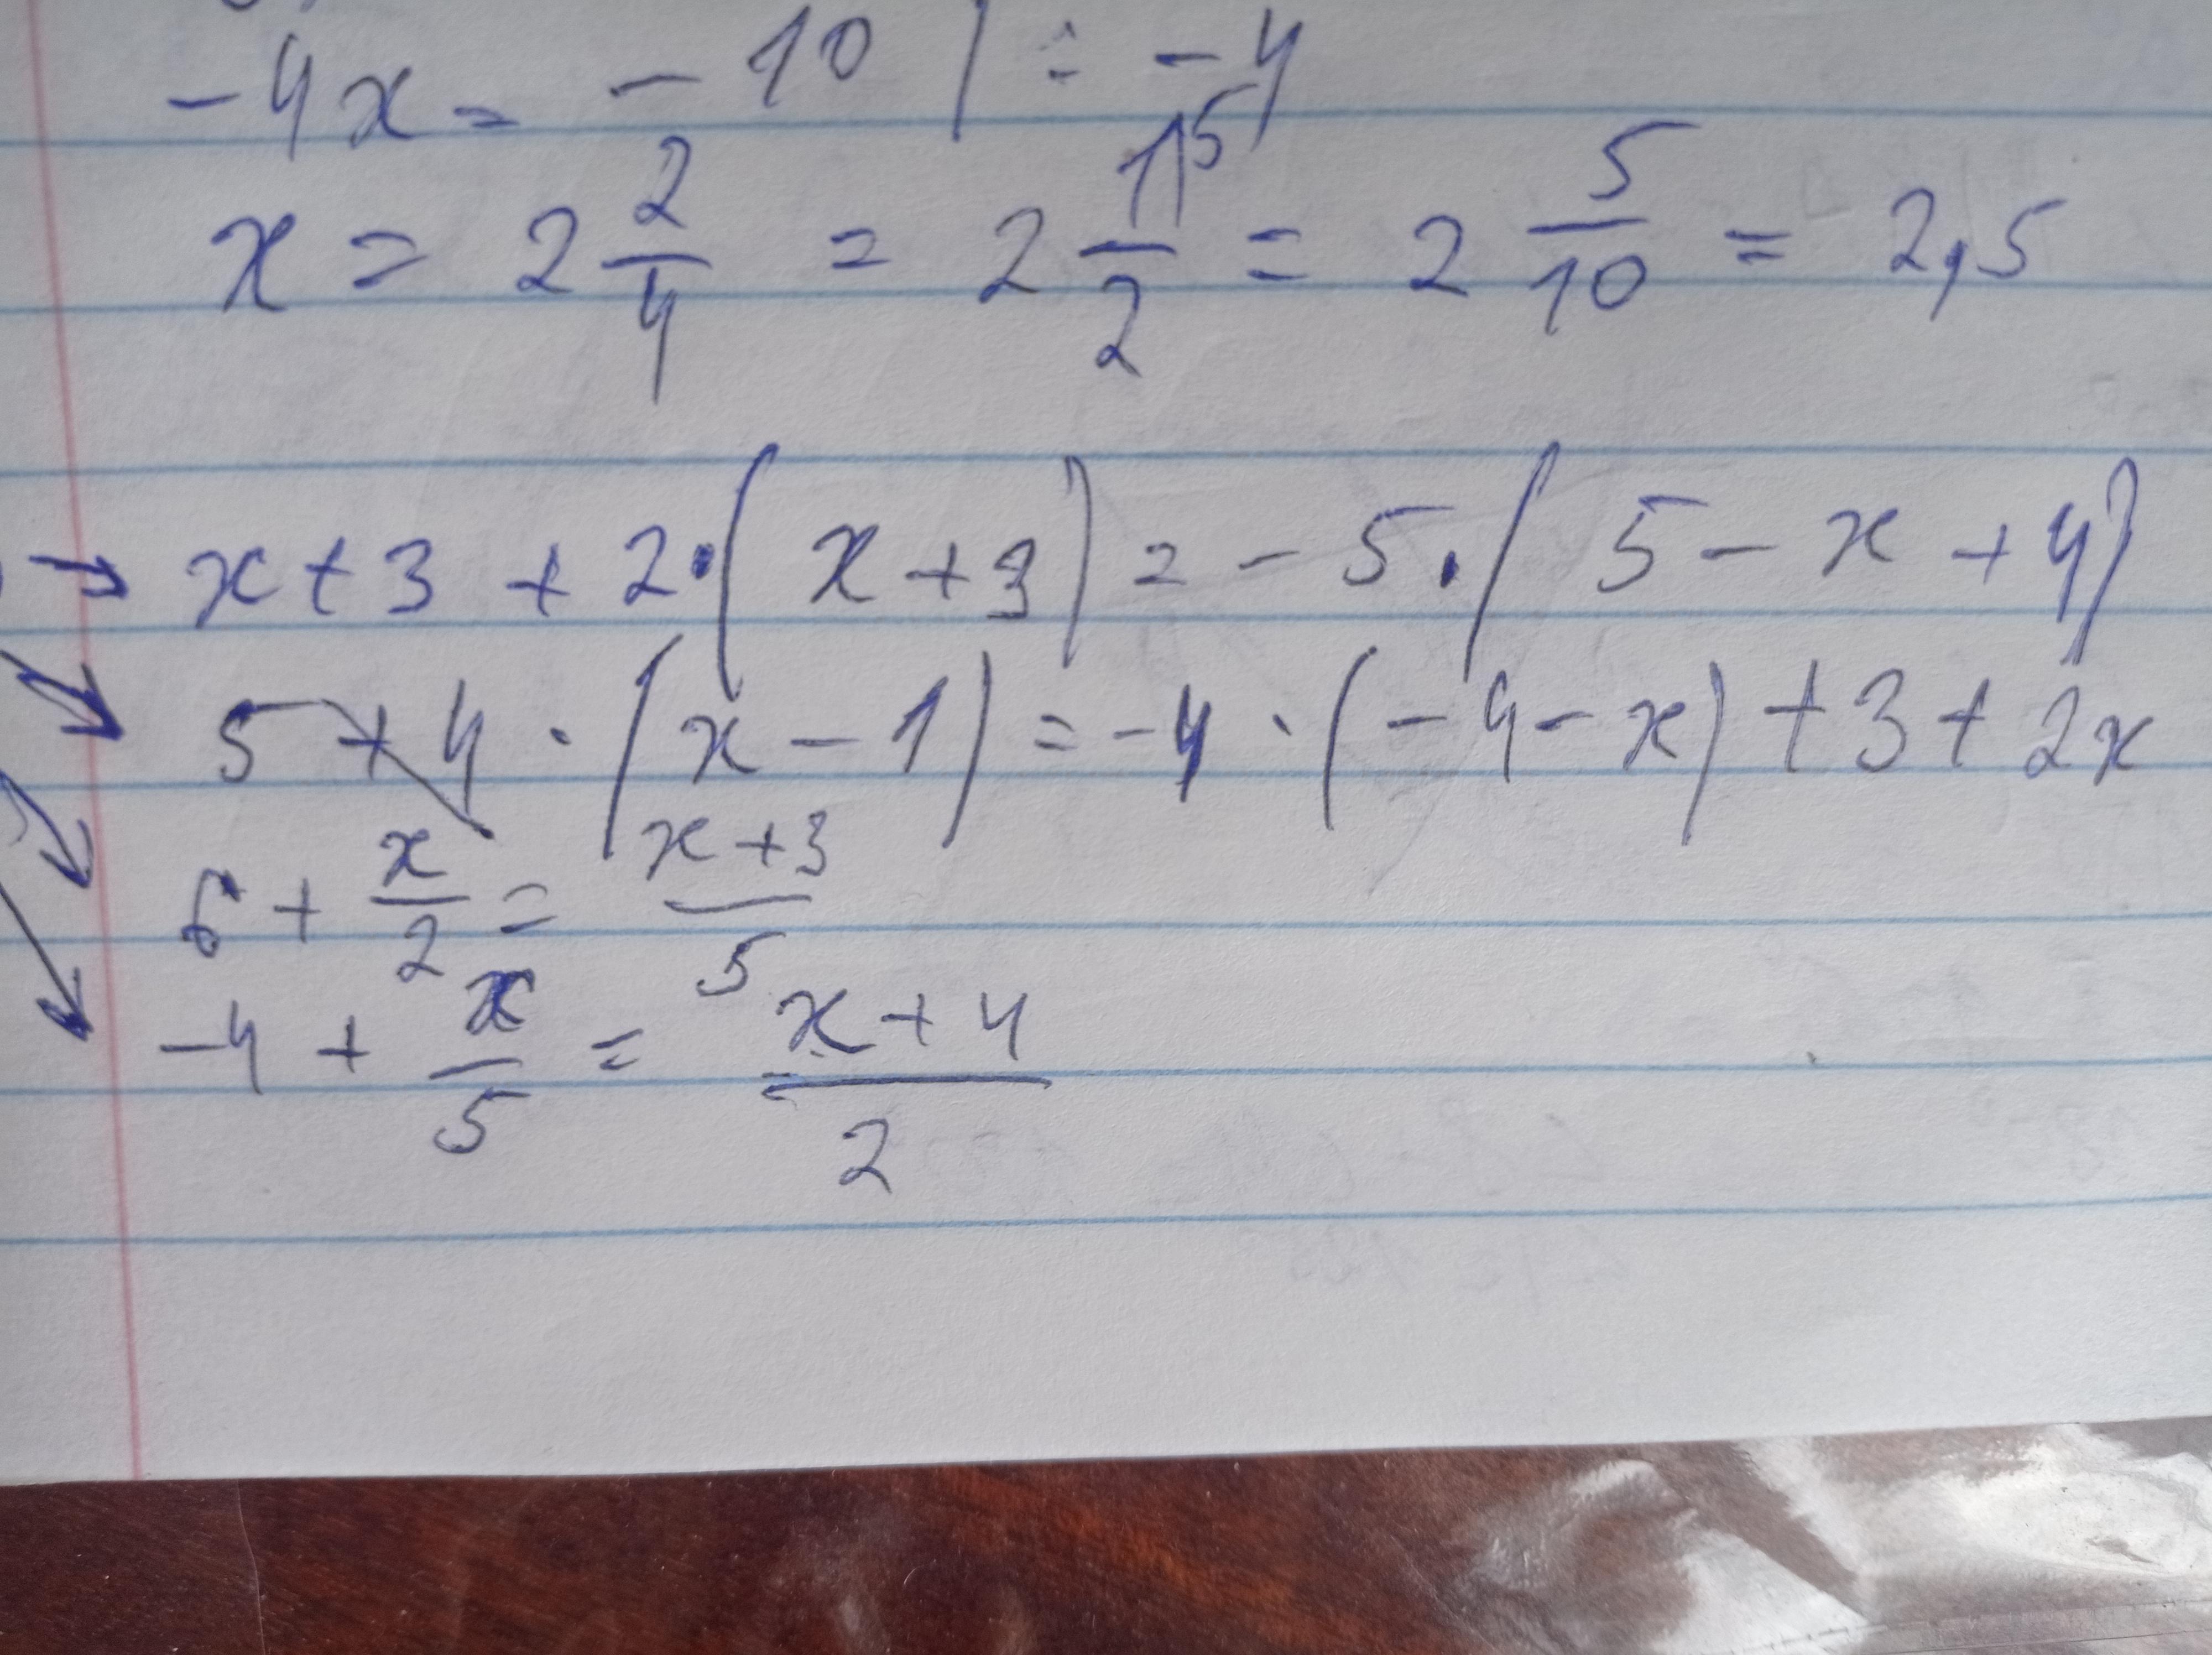 -4x = -10 | : -4
x = 2 2/4 = 2 1/2 = 2 5/10 = 2,5
→ x + 3 + 2 · (x + 3) = -5 · (5 - x + 4)
5 + 4 · (x - 1) = -4 · (-4 - x) + 3 + 2x
6 + x/2 = (x + 3)/5
-4 + x/5 = (x + 4)/2